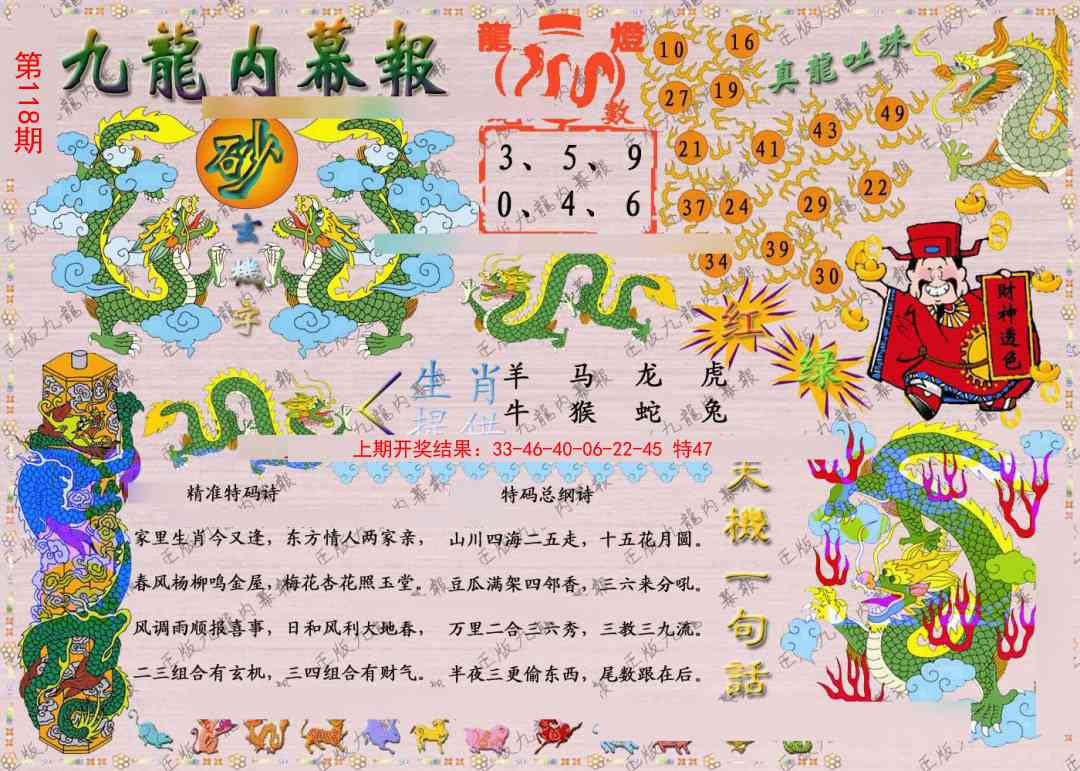 第118期
九龍内幕報
龍燈數
3、5、9
0、4、6
真龍吐珠
10 16
27 19
21 41 43 49
37 24 29 22
34 39 30
砂
玄機字
财神透色
红
绿
生肖提供
羊 马 龙 虎
牛 猴 蛇 兔
上期开奖结果：33-46-40-06-22-45 特47
精准特码诗
家里生肖今又逢，东方情人两家亲，
春风杨柳鸣金屋，梅花杏花照玉堂。
风调雨顺报喜事，日和风利大地春，
二三组合有玄机，三四组合有财气。
特码总纲诗
山川四海二五走，十五花月圆。
豆瓜满架四邻香，三六来分吼。
万里二合三六秀，三教三九流。
半夜三更偷东西，尾数跟在后。
天機一句話
正版九龍内幕報